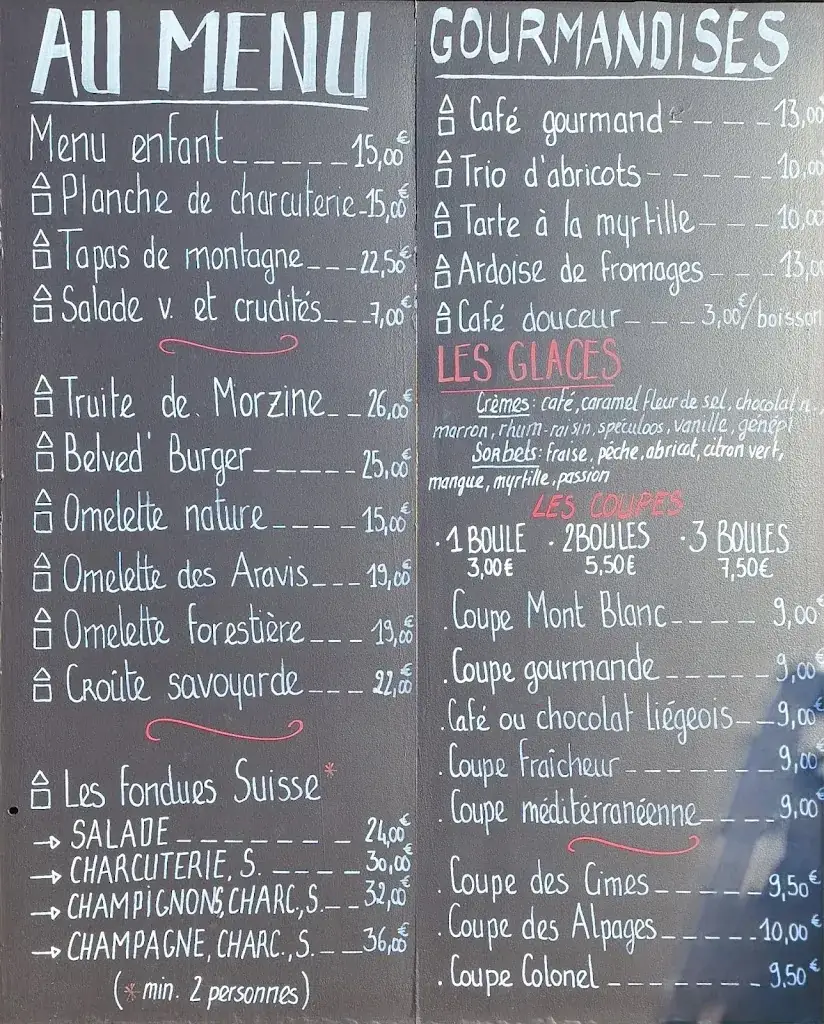 AU MENU
Menu enfant_____15,00€
Planche de charcuterie-15,00€
Tapas de montagne___22,50€
Salade v. et crudités___7,00€
Truite de Morzine__26,00€
Belved' Burger_____25,00€
Omelette nature____15,00€
Omelette des Aravis___19,00€
Omelette forestière___19,00€
Croûte savoyarde___22,00€
Les fondues Suisse*
→ SALADE_______24,00€
→ CHARCUTERIE, S.____30,00€
→ CHAMPIGNONS, CHARC., S.__32,00€
→ CHAMPAGNE, CHARC., S.__36,00€
(* min. 2 personnes)
GOURMANDISES
Café gourmand----13,00
Trio d'abricots-----10,00
Tarte à la myrtille---10,00
Ardoise de fromages---13,00
Café douceur---3,00€/boisson
LES GLACES
Crèmes: café, caramel fleur de sel, chocolat n.,
marron, rhum-raisin, speculoos, vanille, génépi
Sorbets: fraise, pêche, abricot, citron vert,
mangue, myrtille, passion
LES COUPES
. 1 BOULE . 2BOULES . 3 BOULES
3,00€ 5,50€ 7,50€
. Coupe Mont Blanc____9,00€
. Coupe gourmande_____9,00€
. Café ou chocolat liégeois___9,00€
. Coupe fraîcheur______9,00€
. Coupe méditérranéenne____9,00€
. Coupe des Cimes_____9,50€
. Coupe des Alpages_____10,00€
. Coupe Colonel_______9,50€